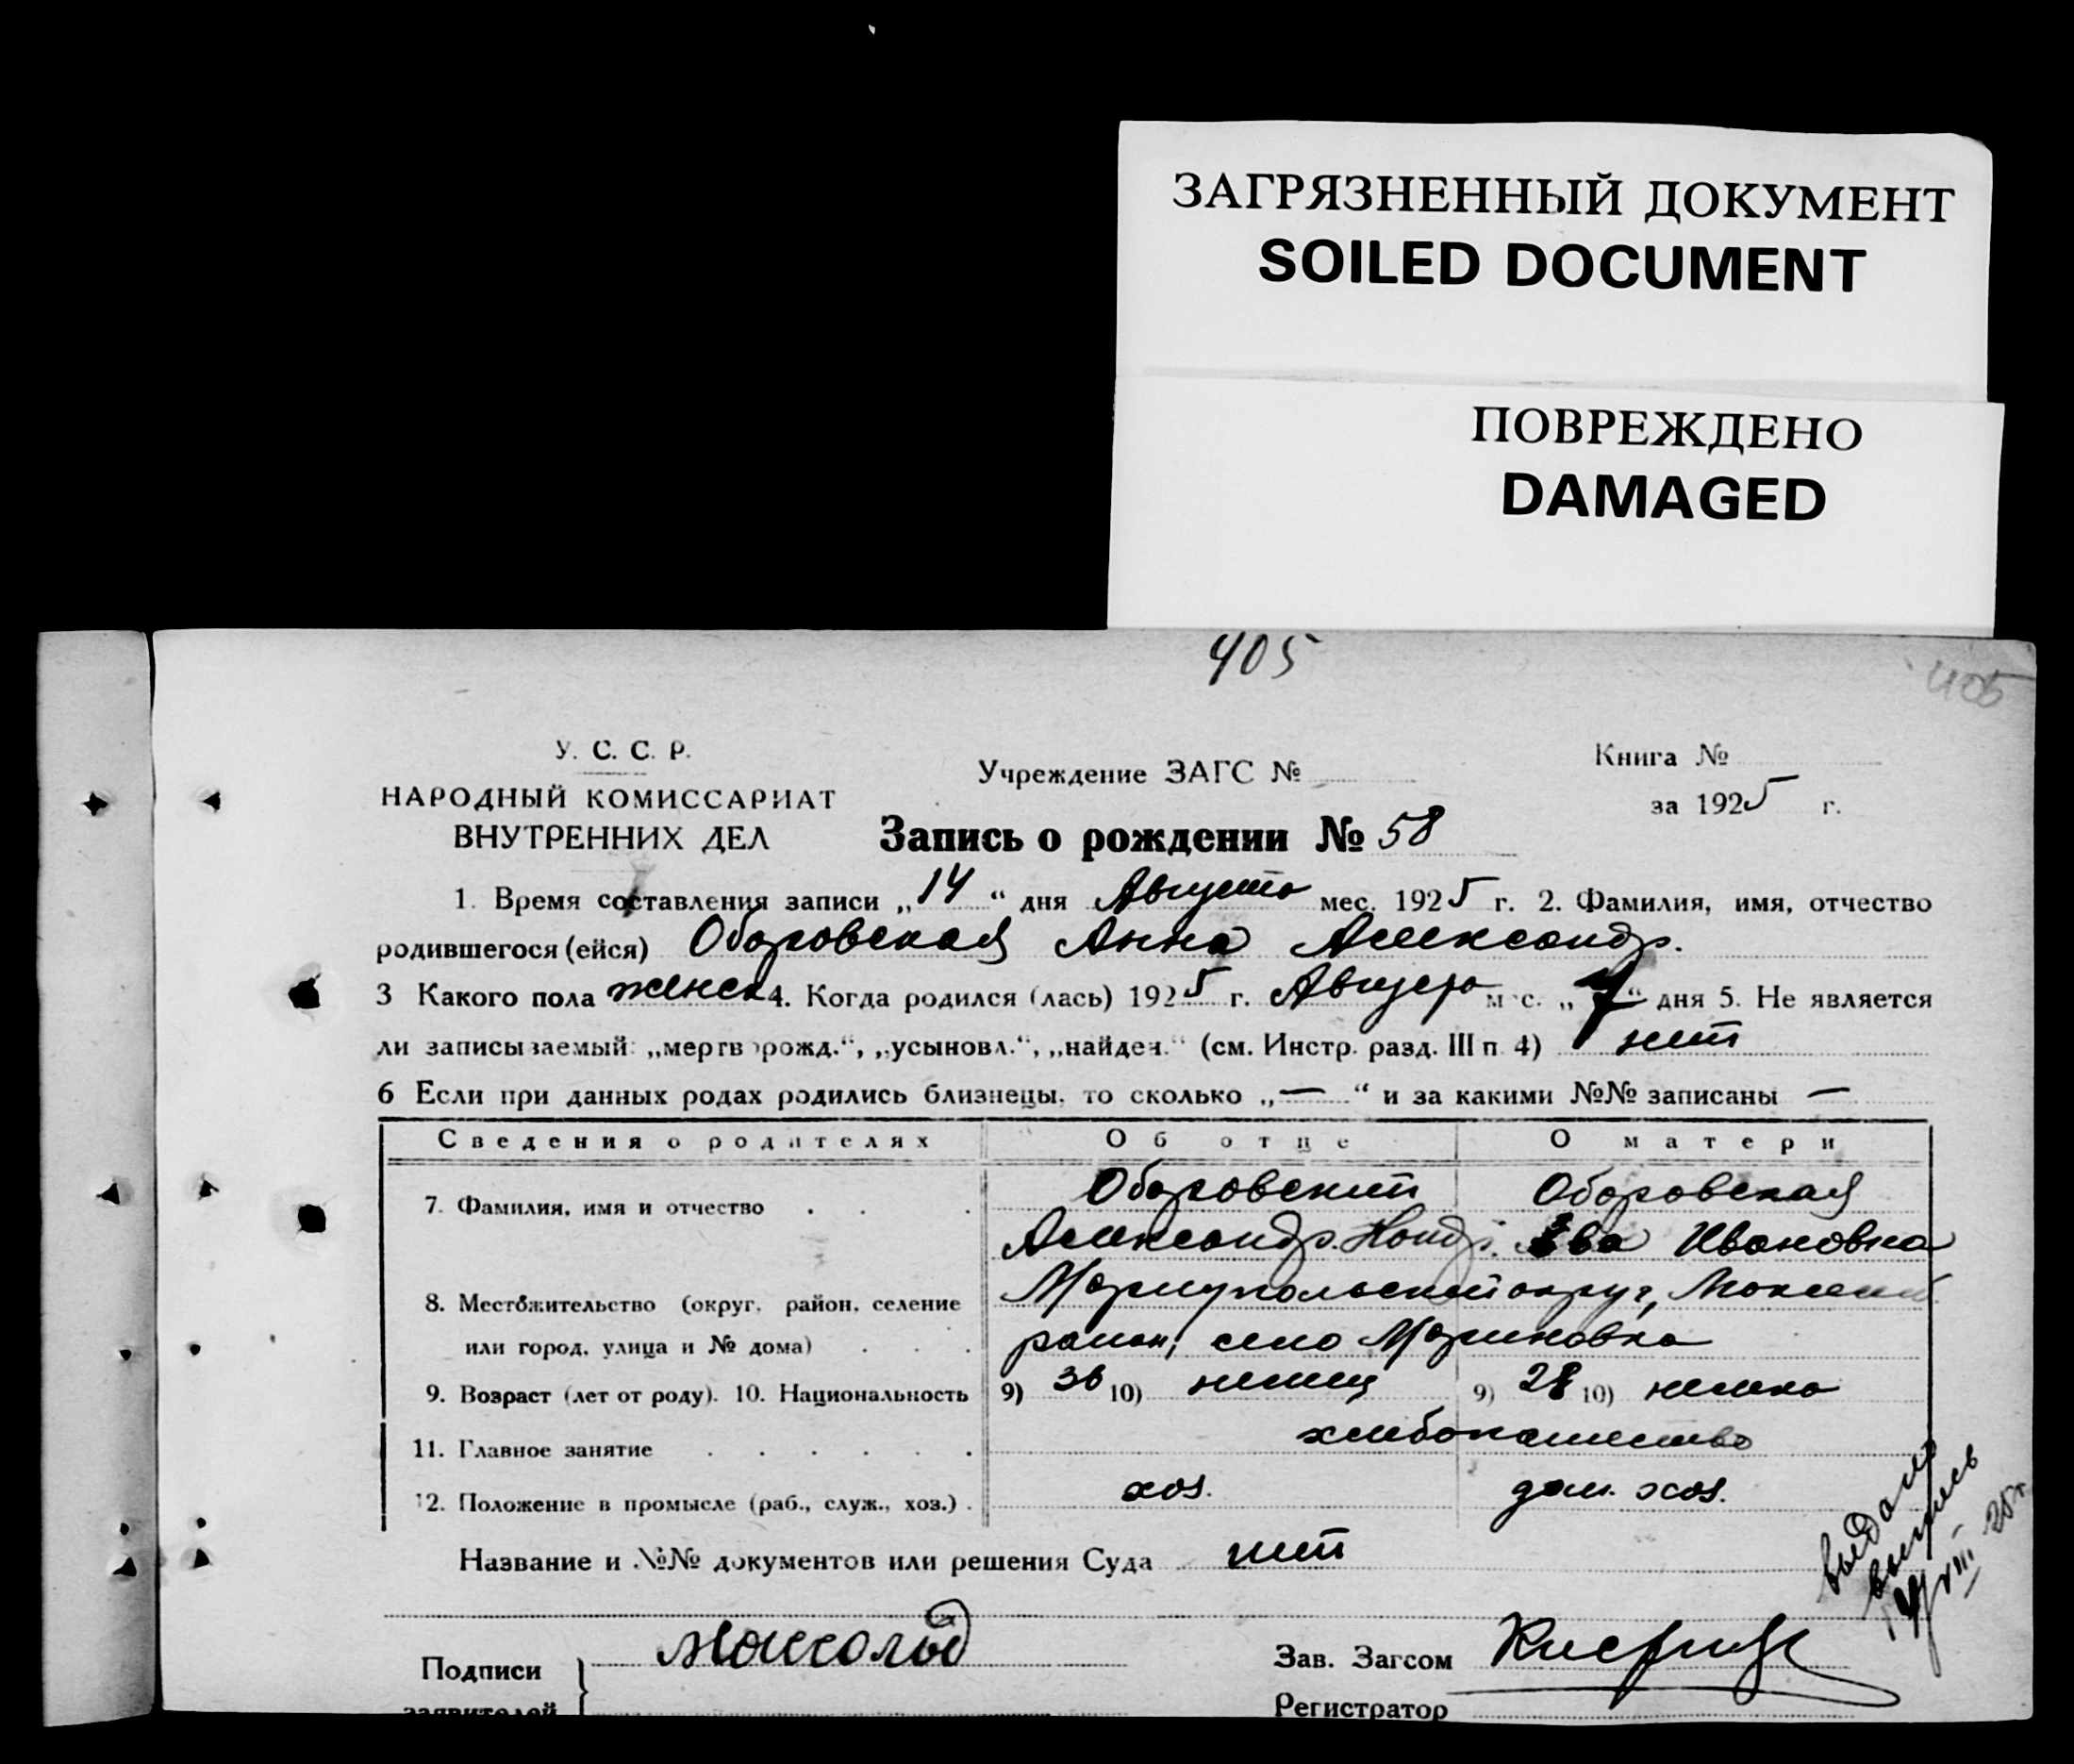 ЗАГРЯЗНЕННЫЙ ДОКУМЕНТ
SOILED DOCUMENT
ПОВРЕЖДЕНО
DAMAGED
405
405
У. С. С. Р.
НАРОДНЫЙ КОМИССАРИАТ
ВНУТРЕННИХ ДЕЛ
Учреждение ЗАГС №
Книга №
за 1925 г.
Запись о рождении № 58
1. Время составления записи „14“ дня Августа мес. 1925 г. 2. Фамилия, имя, отчество
родившегося (ейся) Оборовская Анна Александр.
3 Какого пола женск 4. Когда родился (лась) 1925 г. Августа м с. „7“ дня 5. Не является
ли записываемый: „мертворожд.“, „усыновл.“, „найден.“ (см. Инстр. разд. III п 4) нет
6 Если при данных родах родились близнецы, то сколько „—“ и за какими №№ записаны —
Сведения о родителях Об отце О матери
7. Фамилия, имя и отчество Оборовский Оборовская
Александр. Ева Ивановна
8. Местожительство (округ, район, селение Мариупольский округ,
или город, улица и № дома) район, село Мариновка
9. Возраст (лет от роду). 10. Национальность 9) 36 10) немец 9) 28 10) немка
11. Главное занятие хлебопашество
12. Положение в промысле (раб., служ., хоз.) хоз. дом. хоз.
Название и №№ документов или решения Суда нет
выдана
выпись
14/VIII 25 г
Подписи
заявителей
Зав. Загсом
Регистратор